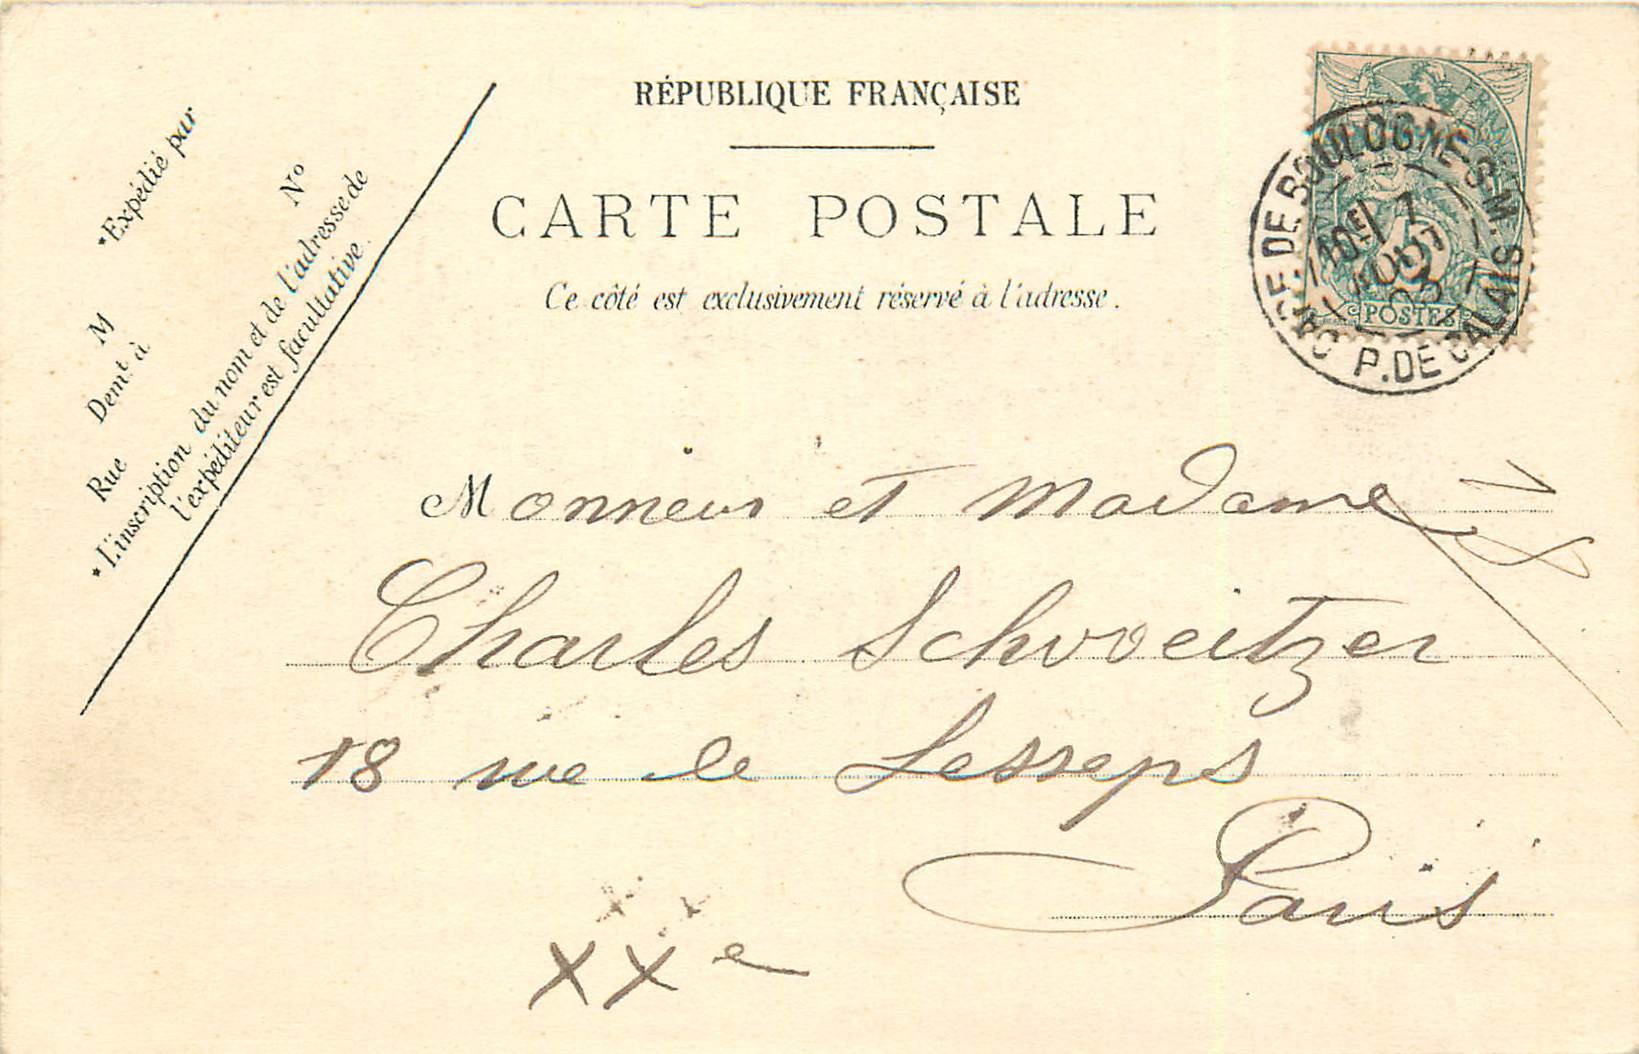 RÉPUBLIQUE FRANÇAISE
CARTE POSTALE
Ce côté est exclusivement réservé à l'adresse.
*Expédié par
M
Demt à
Rue
No
*L'inscription du nom et de l'adresse de
l'expéditeur est facultative.
POSTES
GARE DE BOULOGNE-S-M.
P. DE CALAIS
AOUT
Monsieur et Madame
Charles Schvoeitzer
18 rue de Lesseps
Paris
XXe